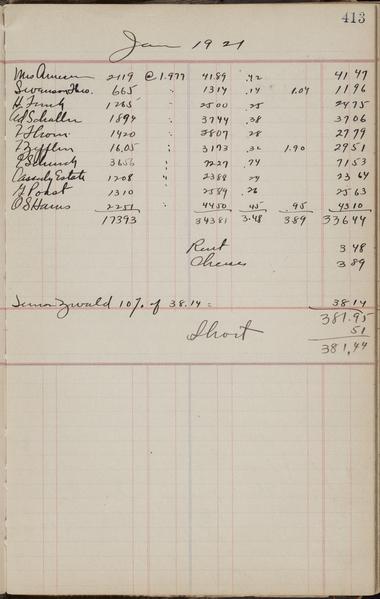 413
Jan 1921
Mrs Amesen 2119 @ 1.977 4189 .42 4147
Swanson Bros. 665 " 1314 .14 1.04 1196
H Funk 1265 " 2500 .25 2475
Ad Schaller 1894 " 3744 .38 3706
1420 " 2807 28 2779
16.05 " 3173 .32 1.90 2951
3656 " 7227 .74 7153
Cassedy Estate 1208 " 2388 24 23 64
1310 " 2589 .26 25 63
O S Harris 2251 " 4450 .45 .95 4310
17393 34381 3.48 3.89 33644
Rent 3 48
Cheese 3 89
10% of 38.14 = 38 14
381.95
Short 51
381,44